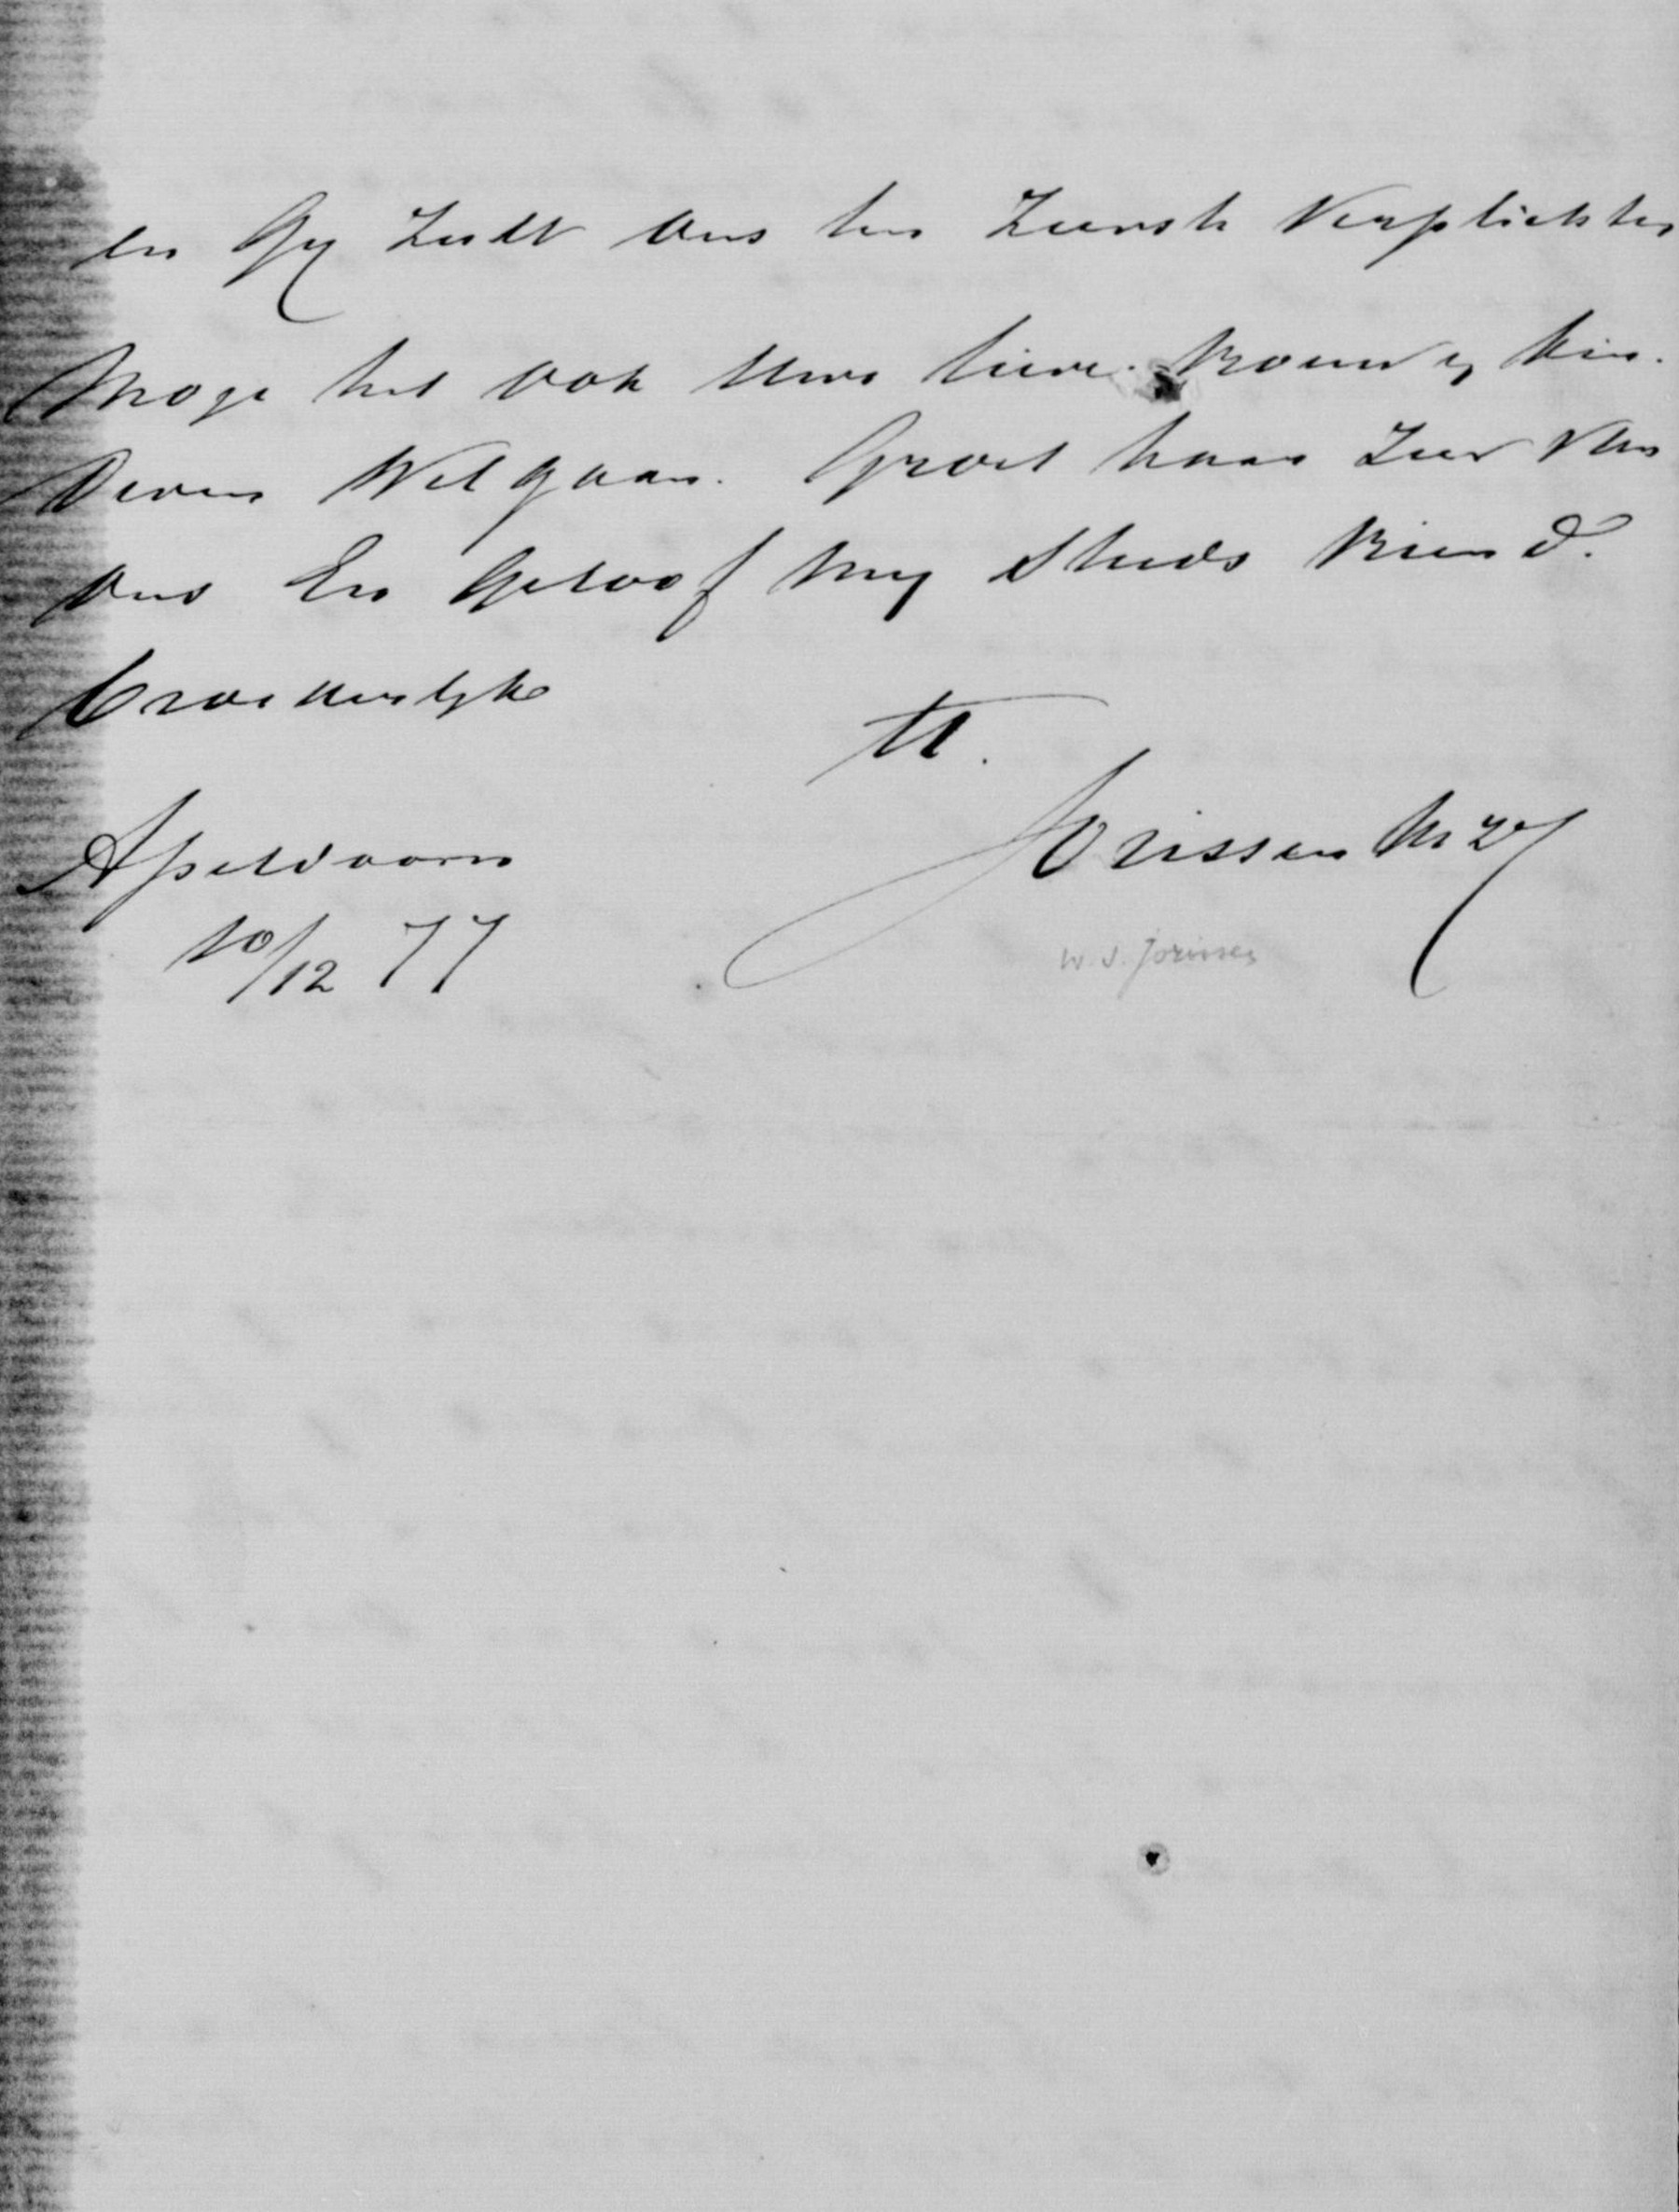 en Gij zult ons ten zeerste verplichten
Moge het ook Uwe lieve vrouw en kin-
deren Welgaan. Groet haar zeer van
ons En Geloof mij steeds vriend.
broederlijke
tt.
Apeldoorn
Jorissen
10/12 77
W. S. Jorissen